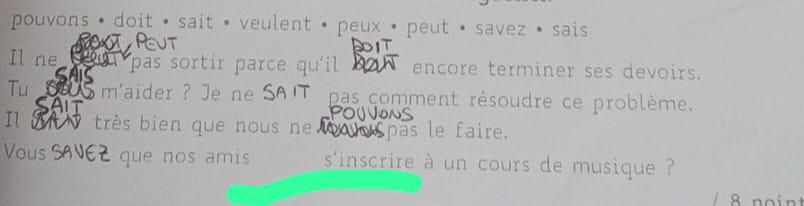 pouvons • doit • sait • veulent • peux • peut • savez • sais
Il ne PEUT pas sortir parce qu'il DOIT encore terminer ses devoirs.
Tu SAIS m'aider ? Je ne SAIT pas comment résoudre ce problème.
Il SAIT très bien que nous ne POUVONS pas le faire.
Vous SAVEZ que nos amis s'inscrire à un cours de musique ?
/ 8 point